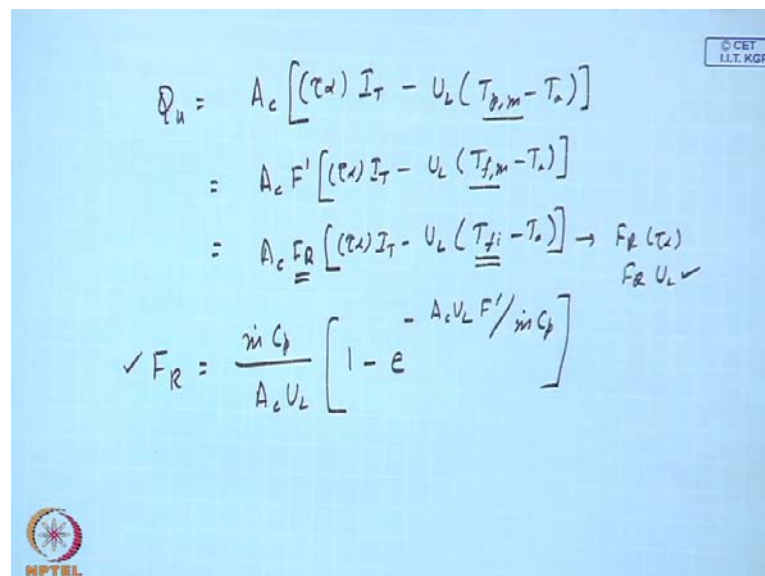 © CET
I.I.T. KGP
Qu = Ac [(τα) I_T - U_L (T_p,m - Ta)]
= Ac F' [(τα) I_T - U_L (T_f,m - Ta)]
= Ac F_R [(τα) I_T - U_L (T_fi - Ta)] → F_R (τα)
F_R U_L ✓
✓ F_R = ṁ Cp / Ac U_L [1 - e^(- Ac U_L F' / ṁ Cp)]
NPTEL